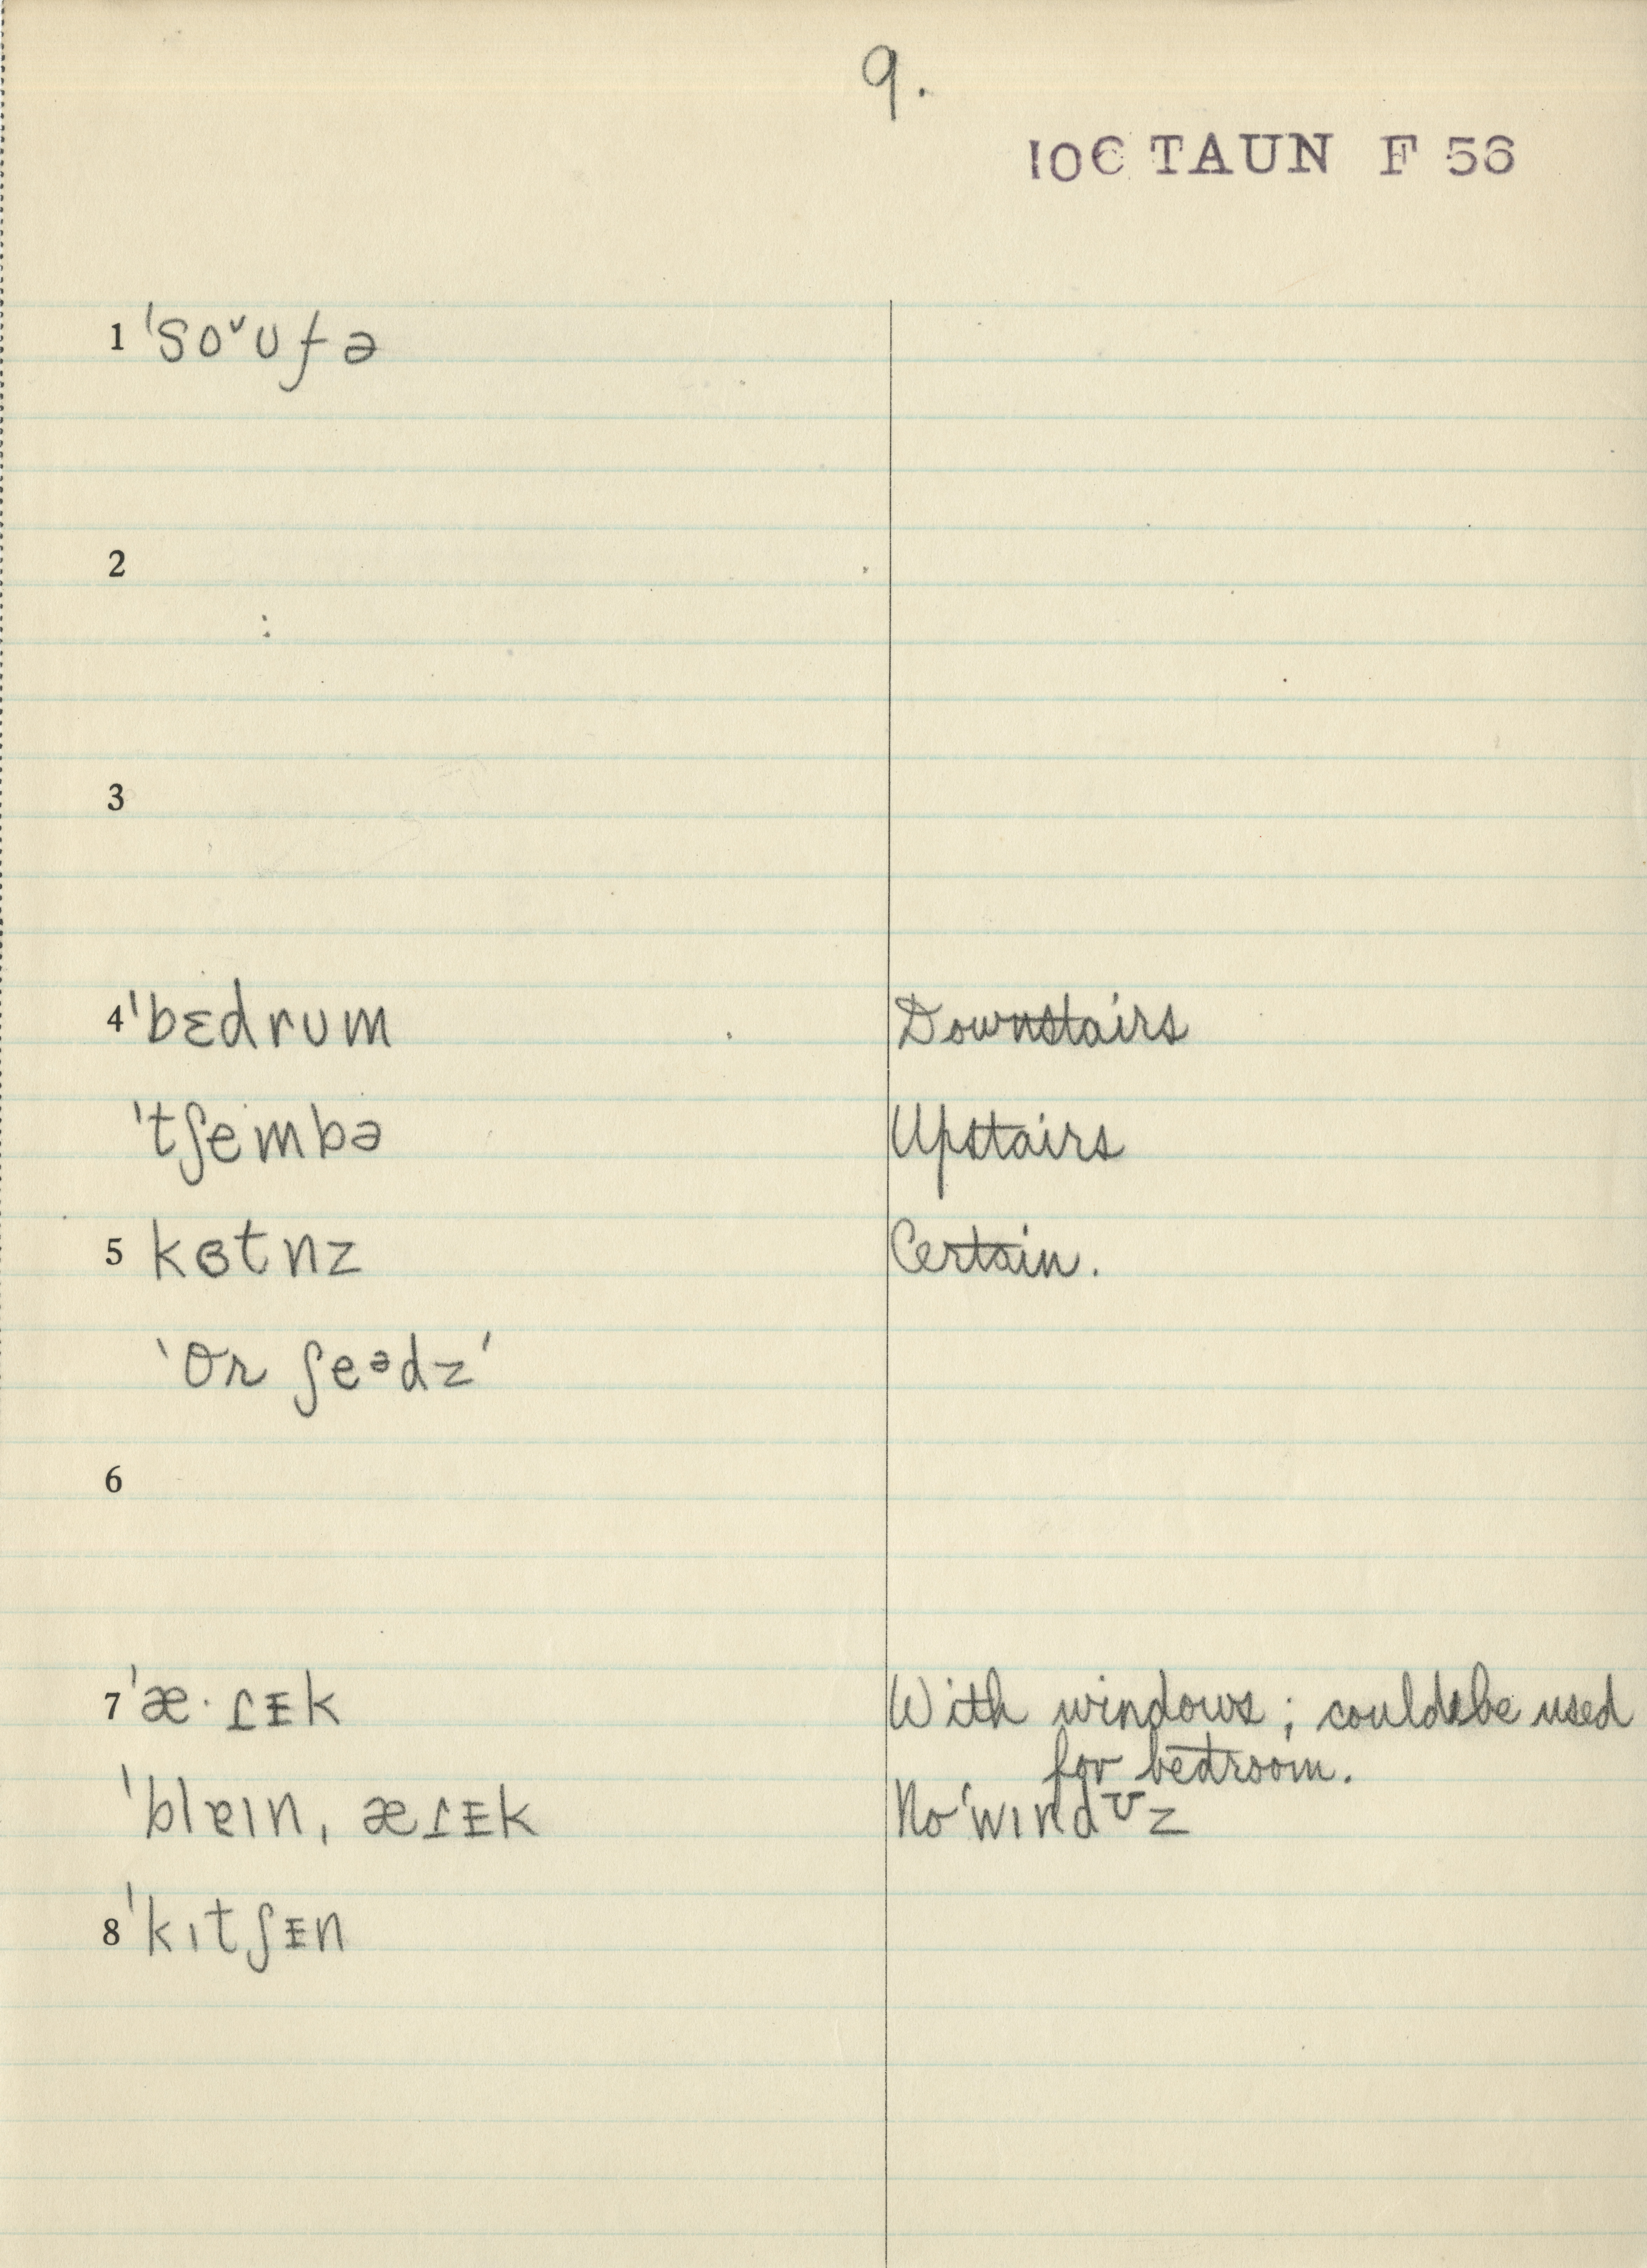 9.
10C TAUN F 56
1 ˈsoˇʊfə
2
3
4 ˈbɛdrʊm Downstairs
ˈtʃembə Upstairs
5 kɵtnz Certain.
'Or ʃeᵊdz'
6
7 ˈæ·ɾᵻk With windows; could be used
for bedroom.
ˈblɐɪn, æɾᵻk No ˈwɪndᴜz
8 ˈkɪtʃᵻn